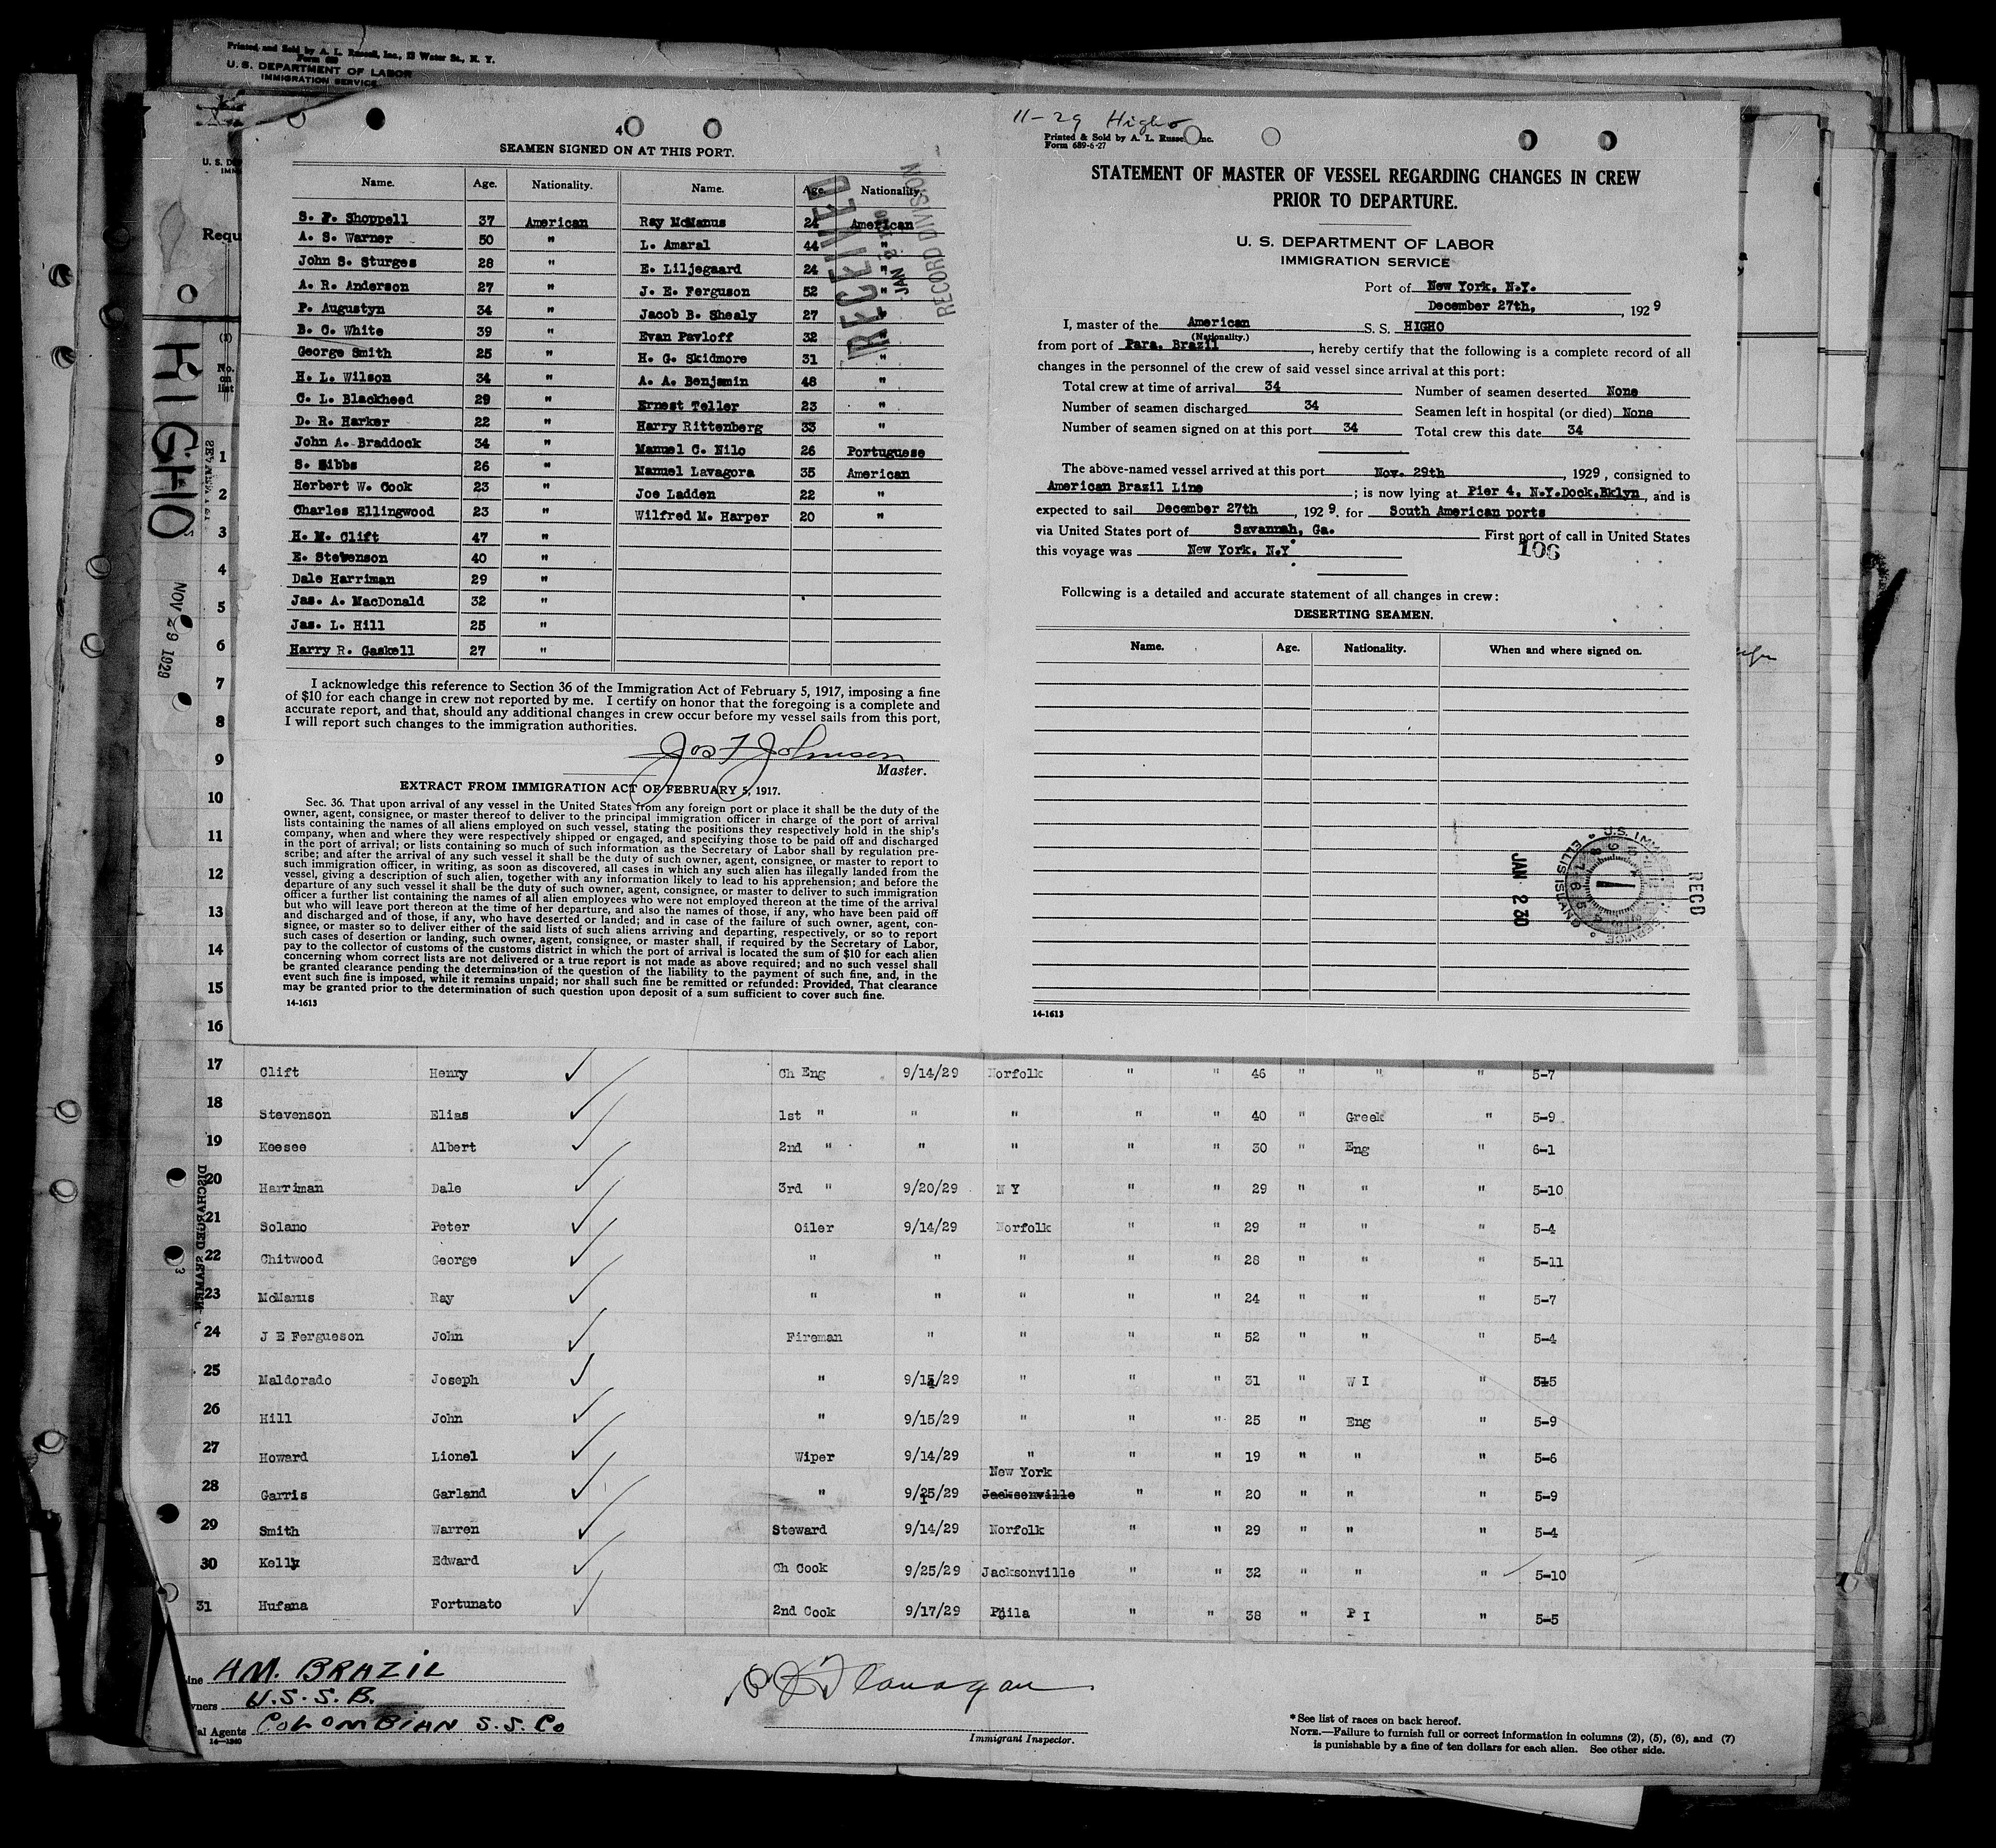 Printed and Sold by A. L. Russell, Inc., 12 Water St., N. Y.
Form 680
U. S. DEPARTMENT OF LABOR
IMMIGRATION SERVICE
Requ
No.
on
list
HIGHO
NOV 29 1929
4
SEAMEN SIGNED ON AT THIS PORT.
Name. Age. Nationality. Name. Age. Nationality.
S. F. Shoppell 37 American Ray McManus 24 American
A. S. Warner 50 " L. Amaral 44 "
John S. Sturges 28 " E. Liljegaard 24 "
A. R. Anderson 27 " J. E. Ferguson 52 "
P. Augustyn 34 " Jacob B. Shealy 27 "
B. C. White 39 " Evan Pavloff 32 "
George Smith 25 " H. G. Skidmore 31 "
H. L. Wilson 34 " A. A. Benjamin 48 "
C. L. Blackheed 29 " Ernest Teller 23 "
D. R. Harker 22 " Harry Rittenberg 33 "
John A. Braddock 34 " Manuel C. Nilo 26 Portuguese
S. Gibbs 26 " Manuel Lavagora 35 American
Herbert W. Cook 23 " Joe Ladden 22 "
Charles Ellingwood 23 " Wilfred M. Harper 20 "
H. M. Clift 47 "
E. Stevenson 40 "
Dale Harriman 29 "
Jas. A. MacDonald 32 "
Jas. L. Hill 25 "
Harry R. Gaskell 27 "
RECEIVED
RECORD DIVISION
I acknowledge this reference to Section 36 of the Immigration Act of February 5, 1917, imposing a fine
of $10 for each change in crew not reported by me. I certify on honor that the foregoing is a complete and
accurate report, and that, should any additional changes in crew occur before my vessel sails from this port,
I will report such changes to the immigration authorities.
Jos F Johnson
Master.
EXTRACT FROM IMMIGRATION ACT OF FEBRUARY 5, 1917.
Sec. 36. That upon arrival of any vessel in the United States from any foreign port or place it shall be the duty of the
owner, agent, consignee, or master thereof to deliver to the principal immigration officer in charge of the port of arrival
lists containing the names of all aliens employed on such vessel, stating the positions they respectively hold in the ship's
company, when and where they were respectively shipped or engaged, and specifying those to be paid off and discharged
in the port of arrival; or lists containing so much of such information as the Secretary of Labor shall by regulation pre-
scribe; and after the arrival of any such vessel it shall be the duty of such owner, agent, consignee, or master to report to
such immigration officer, in writing, as soon as discovered, all cases in which any such alien has illegally landed from the
vessel, giving a description of such alien, together with any information likely to lead to his apprehension; and before the
departure of any such vessel it shall be the duty of such owner, agent, consignee, or master to deliver to such immigration
officer a further list containing the names of all alien employees who were not employed thereon at the time of the arrival
but who will leave port thereon at the time of her departure, and also the names of those, if any, who have been paid off
and discharged and of those, if any, who have deserted or landed; and in case of the failure of such owner, agent, con-
signee, or master so to deliver either of the said lists of such aliens arriving and departing, respectively, or so to report
such cases of desertion or landing, such owner, agent, consignee, or master shall, if required by the Secretary of Labor,
pay to the collector of customs of the customs district in which the port of arrival is located the sum of $10 for each alien
concerning whom correct lists are not delivered or a true report is not made as above required; and no such vessel shall
be granted clearance pending the determination of the question of the liability to the payment of such fine, and, in the
event such fine is imposed, while it remains unpaid; nor shall such fine be remitted or refunded: Provided, That clearance
may be granted prior to the determination of such question upon deposit of a sum sufficient to cover such fine.
14-1613
11-29 Higho
Printed & Sold by A. L. Russe Inc.
Form 689-6-27
STATEMENT OF MASTER OF VESSEL REGARDING CHANGES IN CREW
PRIOR TO DEPARTURE.
U. S. DEPARTMENT OF LABOR
IMMIGRATION SERVICE
Port of New York, N.Y.
December 27th, , 1929
I, master of the American S. S. HIGHO
(Nationality.)
from port of Para, Brazil , hereby certify that the following is a complete record of all
changes in the personnel of the crew of said vessel since arrival at this port:
Total crew at time of arrival 34 Number of seamen deserted None
Number of seamen discharged 34 Seamen left in hospital (or died) None
Number of seamen signed on at this port 34 Total crew this date 34
The above-named vessel arrived at this port Nov. 29th , 1929, consigned to
American Brazil Line ; is now lying at Pier 4, N.Y.Dock,Bklyn, and is
expected to sail December 27th , 1929. for South American ports
via United States port of Savannah, Ga. First port of call in United States
this voyage was New York, N.Y
106
Following is a detailed and accurate statement of all changes in crew:
DESERTING SEAMEN.
Name. Age. Nationality. When and where signed on.
JAN 2 30
U.S. IMMIGRATION SERVICE ELLIS ISLAND
RECD
14-1613
1
2
3
4
5
6
7
8
9
10
11
12
13
14
15
16
17 Clift Henry Ch Eng 9/14/29 Norfolk " " 46 " " " 5-7
18 Stevenson Elias 1st " " " " " 40 " Greek " 5-9
19 Keesee Albert 2nd " " " " " 30 " Eng " 6-1
20 Harriman Dale 3rd " 9/20/29 N Y " " 29 " " " 5-10
21 Solano Peter Oiler 9/14/29 Norfolk " " 29 " " " 5-4
22 Chitwood George " " " " " 28 " " " 5-11
23 McManus Ray " " " " " 24 " " " 5-7
24 J E Fergueson John Fireman " " " " 52 " " " 5-4
25 Maldorado Joseph " 9/15/29 " " " 31 " W I " 5-5
26 Hill John " 9/15/29 " " " 25 " Eng " 5-9
27 Howard Lionel Wiper 9/14/29 " " " 19 " " " 5-6
New York
28 Garris Garland " 9/25/29 Jacksonville " " 20 " " " 5-9
29 Smith Warren Steward 9/14/29 Norfolk " " 29 " " " 5-4
30 Kelly Edward Ch Cook 9/25/29 Jacksonville " " 32 " " " 5-10
31 Hufana Fortunato 2nd Cook 9/17/29 Phila " " 38 " P I " 5-5
DISCHARGED SEAMEN
ine AM. BRAZIL
wners U.S.S.B.
al Agents COLOMBIAN S.S. Co
14-1240
Flanagan
Immigrant Inspector.
* See list of races on back hereof.
NOTE.—Failure to furnish full or correct information in columns (2), (5), (6), and (7)
is punishable by a fine of ten dollars for each alien. See other side.